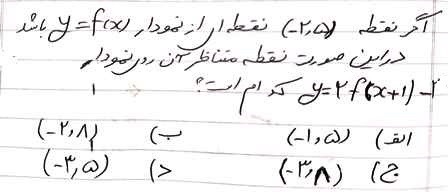 اگر نقطه (-۲,۵) نقطه‌ای از نمودار y=f(x) باشد
در این صورت نقطه متناظر آن روی نمودار
y=۲f(x+1)-۲ کدام است؟
الف) (-۱,۵) ب) (-۲,۸)
ج) (-۳,۸) د) (-۳,۵)